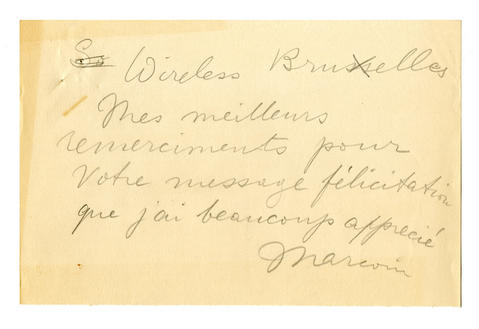 Wireless Bruxelles
Mes meilleurs
remerciments pour
Votre message félicitation
que j'ai beaucoup apprecié
Marconi